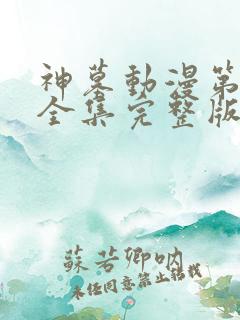 神墓動漫第
全集完整版
蘇若卿吶
未经同意禁止轉载